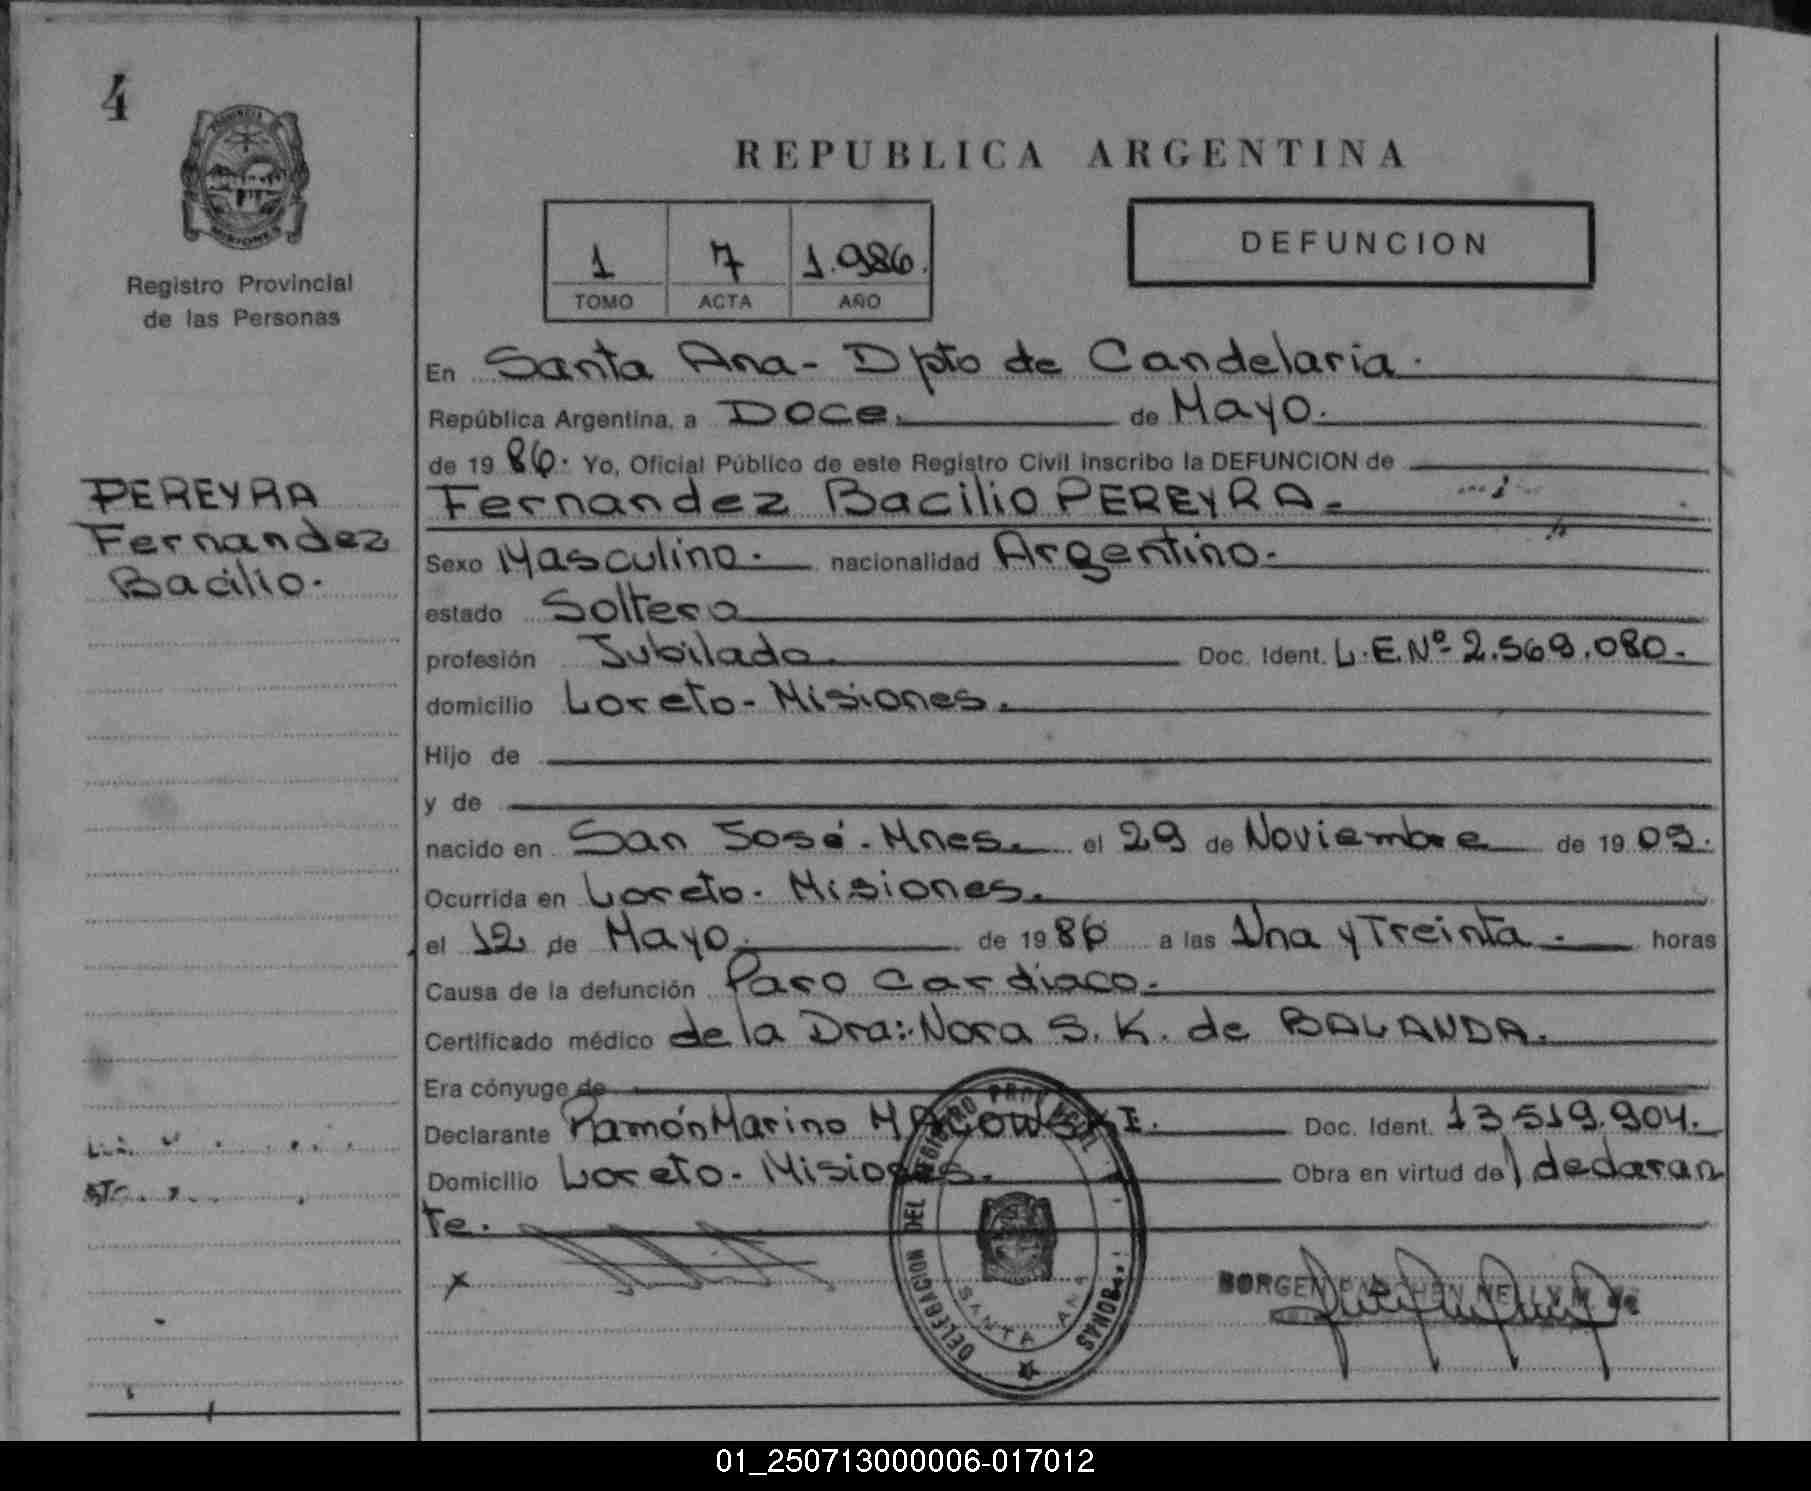 4
PROVINCIA
MISIONES
Registro Provincial
de las Personas
REPUBLICA ARGENTINA
1 7 1.986.
TOMO ACTA AÑO
DEFUNCION
En Santa Ana - Dpto de Candelaria.
República Argentina, a Doce. de Mayo.
de 19 86. Yo, Oficial Público de este Registro Civil inscribo la DEFUNCION de
Fernandez Bacilio PEREYRA.-
PEREYRA
Fernandez
Bacilio.
Sexo Masculino. nacionalidad Argentino.
estado Soltero
profesión Jubilado. Doc. Ident. L.E.Nº 2.569.080.-
domicilio Loreto - Misiones.
Hijo de
y de
nacido en San José. Mnes. el 29 de Noviembre de 19 09.
Ocurrida en Loreto - Misiones.
el 12 de Mayo. de 19 86 a las Una y Treinta. horas
Causa de la defunción Paro Cardiaco.
Certificado médico de la Dra: Nora S. K. de BALANDA.
Era cónyuge de
Declarante Ramón Marino Doc. Ident. 13 519.904.
Domicilio Loreto - Misiones. Obra en virtud de l declaran
te.
x
DELEGACION DEL REGISTRO PROVINCIAL
SANTA ANA
BORGEN NELLY M. de
01_250713000006-017012